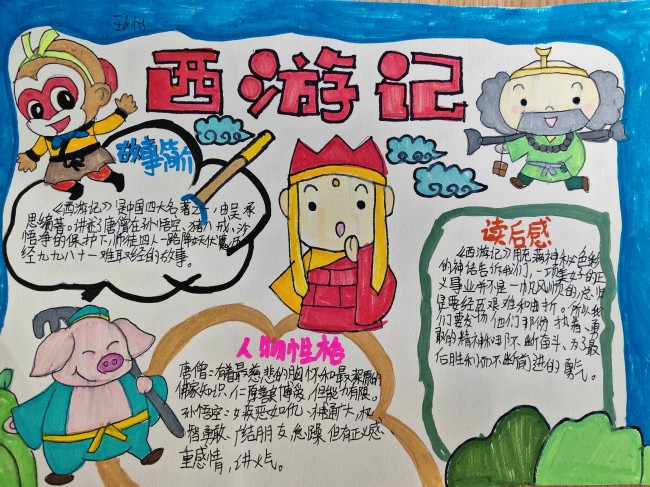 西游记
故事简介
《西游记》是中国四大名著之一,由吴承
思编著。讲述了唐僧在孙悟空、猪八戒、沙
悟净的保护下,师徒四人一路降妖伏魔,历
经九九八十一难取经的故事。
人物性格
唐僧:有着最慈悲的胸怀和最深厚的
佛家知识,仁厚兼博爱,但能力有限。
孙悟空:女疾恶如仇,神通广大,机
智勇敢、广结朋友,急躁,但有正义感
重感情,讲义气。
读后感
《西游记》用充满神秘色彩
的神话告诉我们,一项美好的正
义事业并不是一帆风顺的,总归
是要经历艰难和曲折。所以我
们要发扬他们那份执着、勇
敢的精神和不断奋斗、为了最
后胜利而不断前进的勇气。